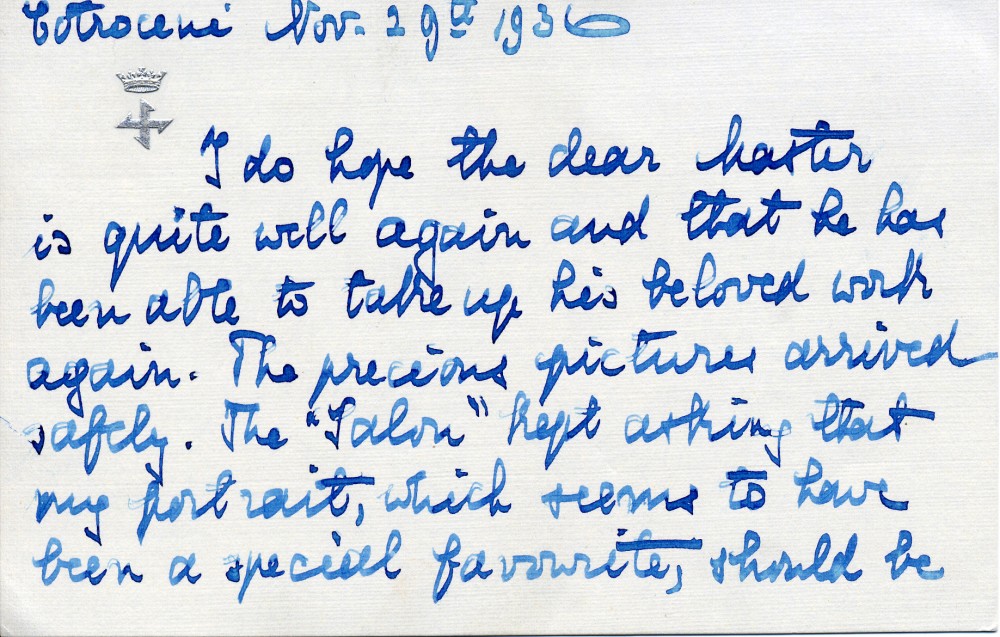 Cotroceni Nov. 29th 1936
I do hope the dear Master
is quite well again and that he has
been able to take up his beloved work
again. The precious pictures arrived
safely. The "Salon" kept asking that
my portrait, which seems to have
been a special favourite, should be